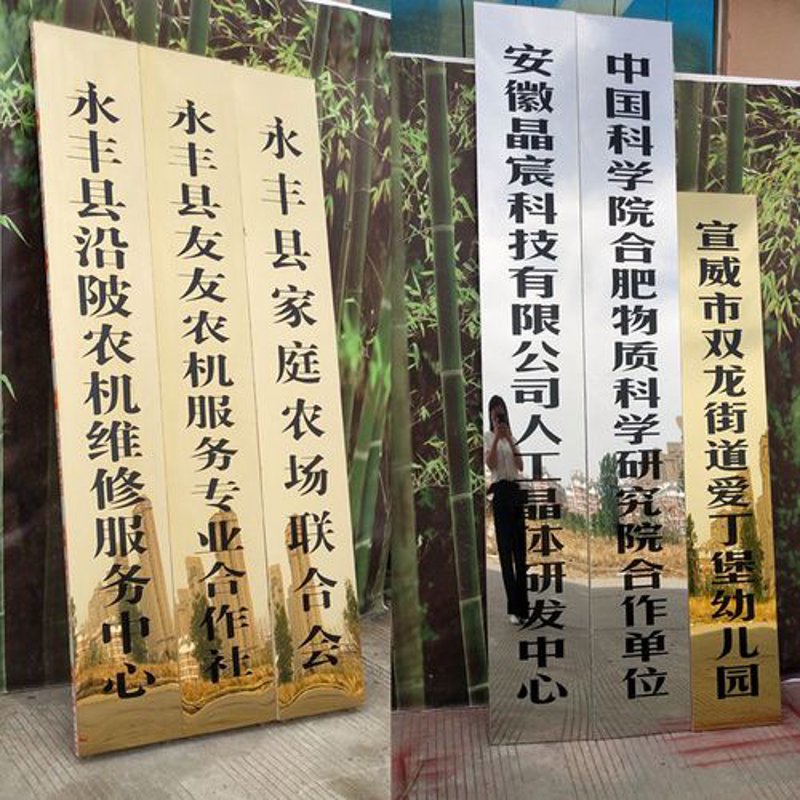 永丰县沿陂农机维修服务中心
永丰县友友农机服务专业合作社
永丰县家庭农场联合会
安徽晶宸科技有限公司人工晶体研发中心
中国科学院合肥物质科学研究院合作单位
宣威市双龙街道爱丁堡幼儿园